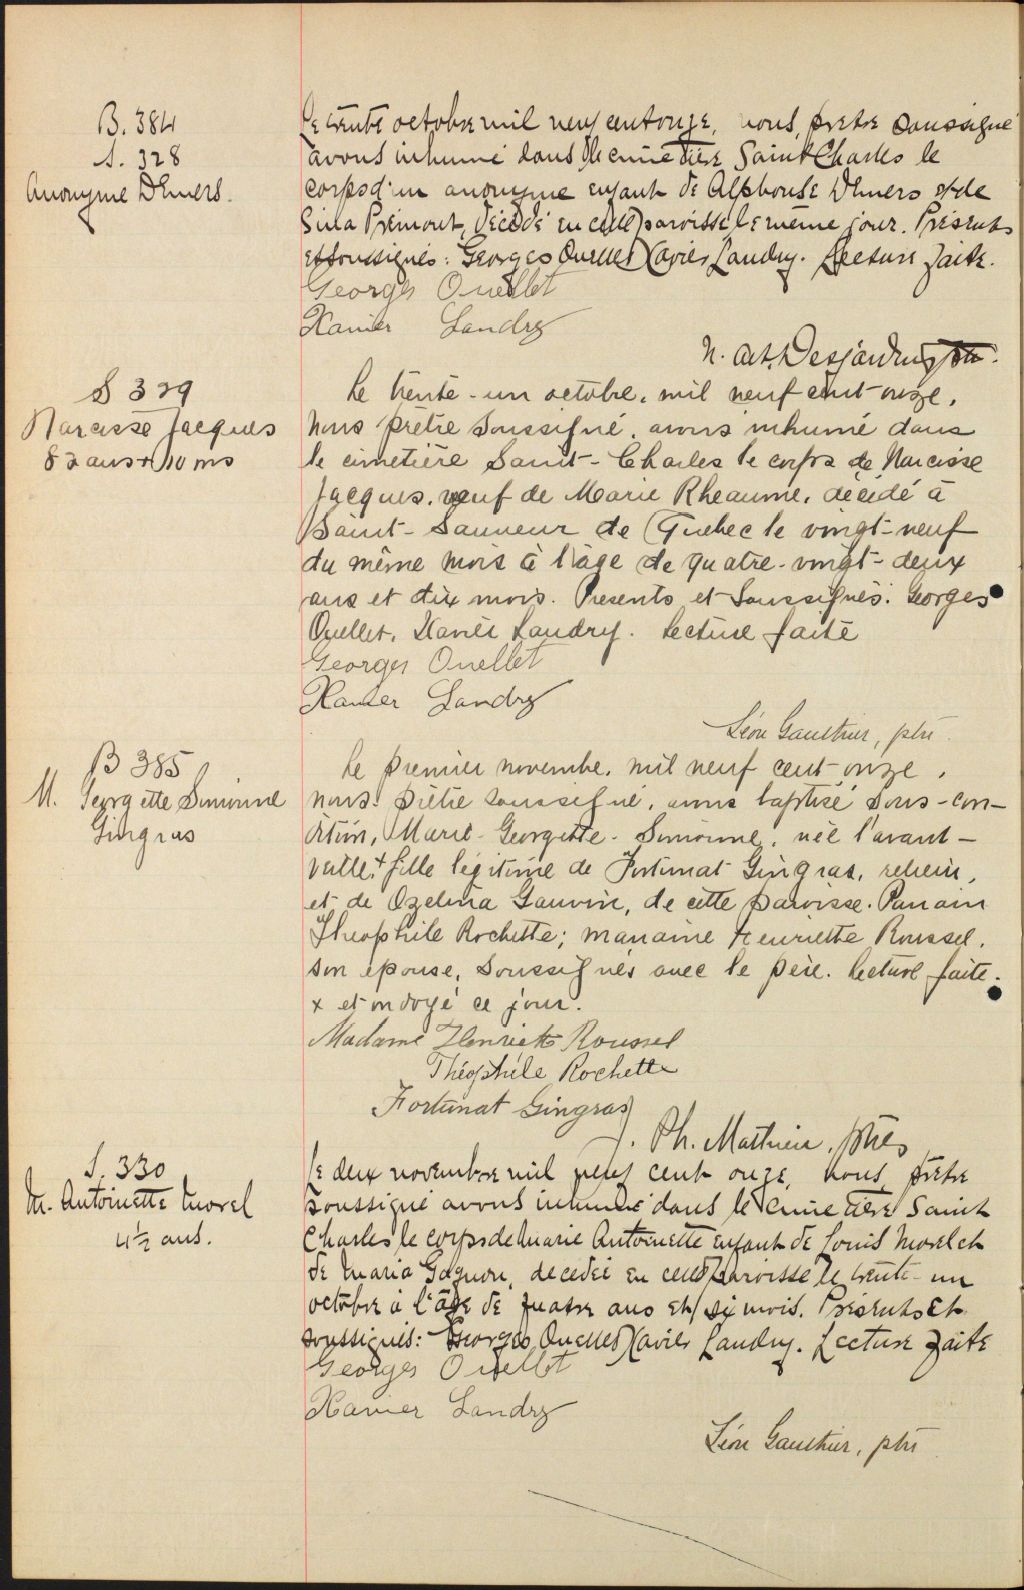 B. 384
S. 328
Anonyme Demers.
Le trente octobre mil neuf cent onze, nous, prêtre soussigné
avons inhumé dans le cimetière Saint Charles le
corps d'un anonyme enfant de Alphonse Demers et de
Sina Prémont, décédé en cette paroisse le même jour. Présents
et soussignés: Georges Ouellet Xavier Landry. Lecture faite.
Georges Ouellet
Xavier Landry
N. Art. Desjardins, ptre.
S 329
Narcisse Jacques
82 ans + 10 ms
Le trente-un octobre, mil neuf cent-onze,
nous prêtre soussigné, avons inhumé dans
le cimetière Saint-Charles le corps de Narcisse
Jacques, veuf de Marie Rheaume, décédé à
Saint-Sauveur de Quebec le vingt-neuf
du même mois à l'âge de quatre-vingt-deux
ans et dix mois. Presents et soussignés: Georges
Ouellet, Xavier Landry. Lecture faite
Georges Ouellet
Xavier Landry
Léon Gauthier, ptre
B 385
M. Georgette Simonne
Gingras
Le premier novembre, mil neuf cent-onze,
nous prêtre soussigné, avons baptisé sous-con-
dition, Marie-Georgette-Simonne, née l'avant-
veille + fille légitime de Fortunat Gingras, relieur,
et de Ozelina Gauvin, de cette paroisse. Parrain
Théophile Rochette; marraine Henriette Roussel,
son épouse, soussignés avec le père. Lecture faite.
x et ondoyé ce jour.
Madame Henriette Roussel
Théophile Rochette
Fortunat Gingras
J. Ph. Mathieu, ptre
S. 330
M. Antoinette Morel
4½ ans.
Le deux novembre mil neuf cent onze, nous, prêtre
soussigné avons inhumé dans le cimetière Saint
Charles le corps de Marie Antoinette enfant de Louis Morel et
de Maria Gagnon, decedée en cette paroisse le trente-un
octobre à l'âge de quatre ans et six mois. Présents et
soussignés: Georges Ouellet Xavier Landry. Lecture faite
Georges Ouellet
Xavier Landry
Léon Gauthier, ptre